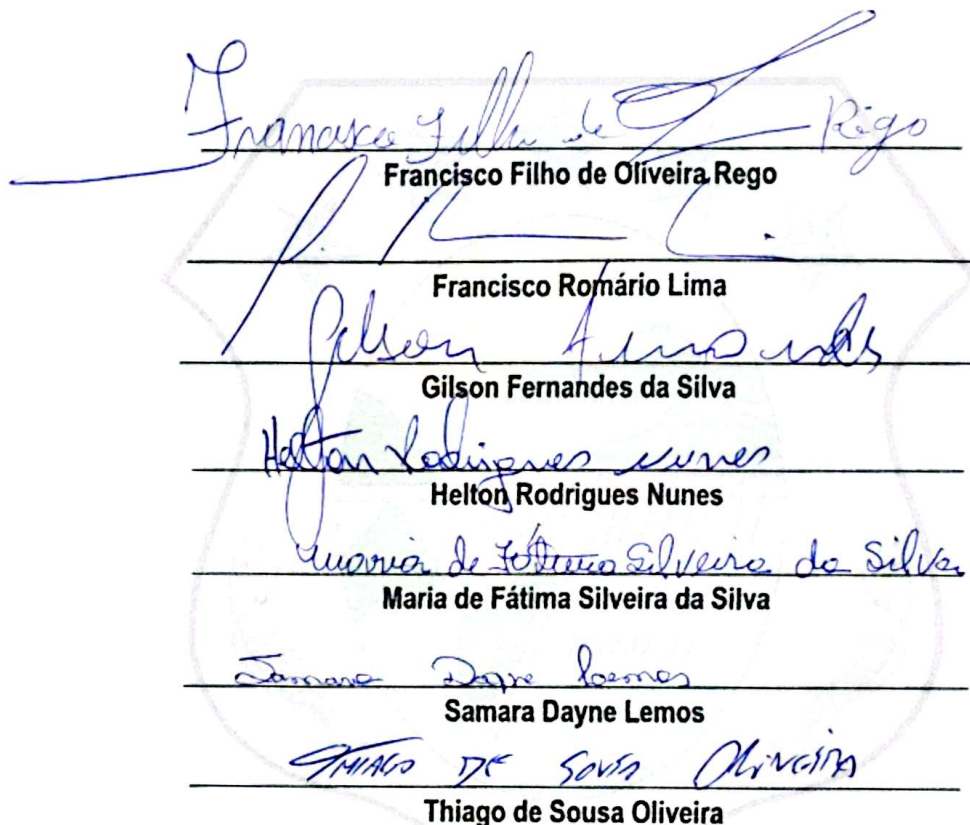 Francisco Filho de Rego
Francisco Filho de Oliveira Rego
Francisco Romário Lima
Gilson Fernandes
Gilson Fernandes da Silva
Helton Rodrigues Nunes
Helton Rodrigues Nunes
Maria de Fátima Silveira da Silva
Maria de Fátima Silveira da Silva
Samara Dayne Lemos
Samara Dayne Lemos
THIAGO DE SOUSA OLIVEIRA
Thiago de Sousa Oliveira